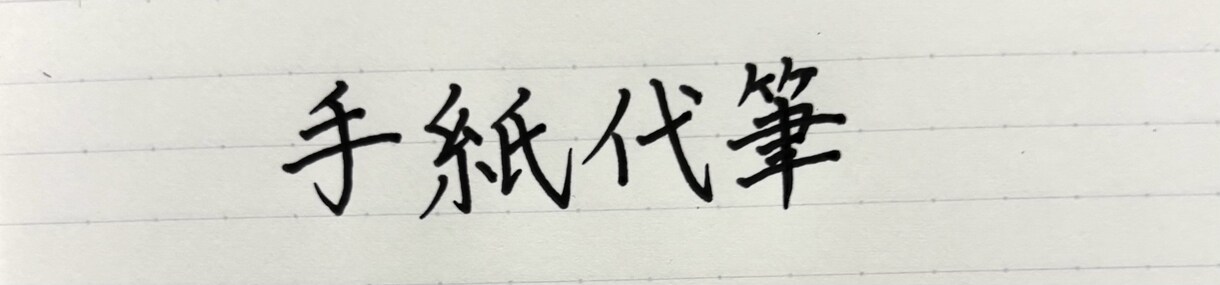 手紙代筆